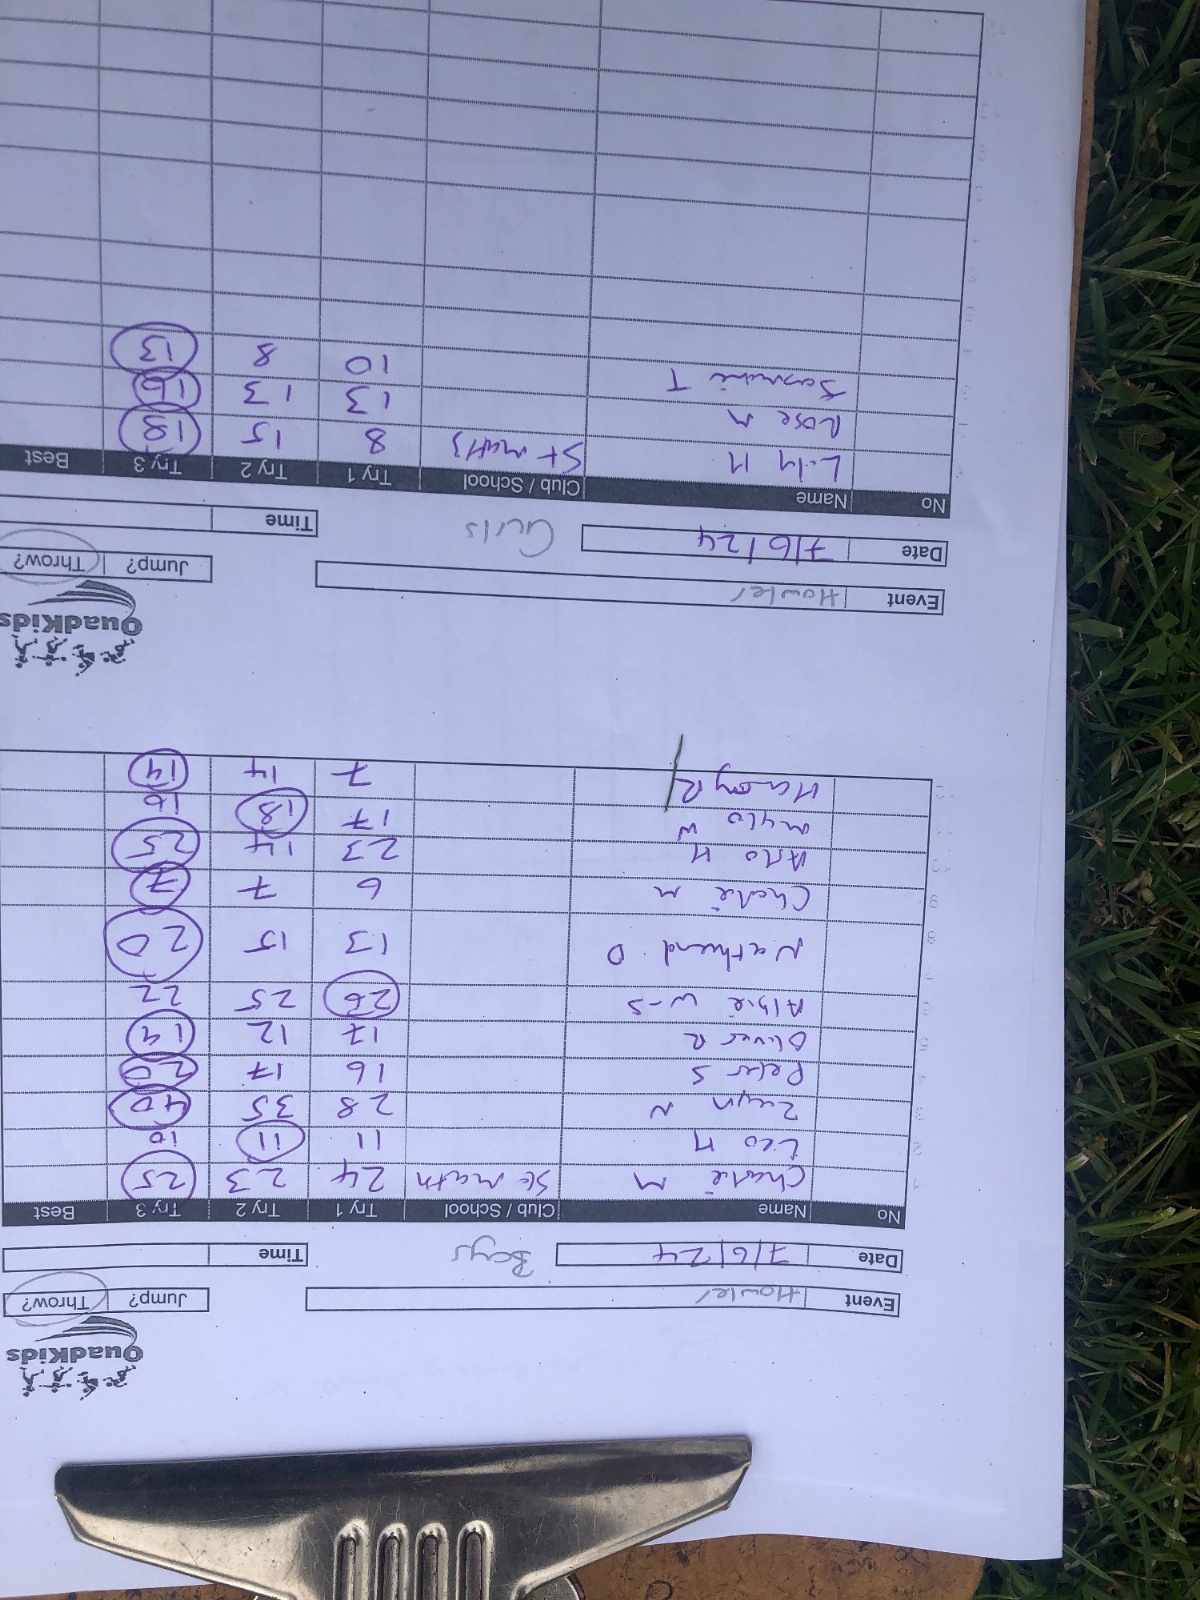 QuadKids
Event Howler Jump? Throw?
Date 7/6/24 Boys Time
No Name Club / School Try 1 Try 2 Try 3 Best
1 Charlie M 24 23 25
2 Leo H 11 11 10
3 Zayn N 28 35 40
Peter S 16 17 20
5 Oliver R 17 12 19
6 Albie W-S 26 25 22
8 Nathaniel O 13 15 20
9 Charlie M 6 7 7
10 Arlo H 23 14 25
Mylo W 17 18 16
Harry R 7 14 14
QuadKids
Event Howler Jump? Throw?
Date 7/6/24 Girls Time
No Name Club / School Try 1 Try 2 Try 3 Best
Lily H 8 15 18
Rose M 13 13 16
Jasmine T 10 8 13